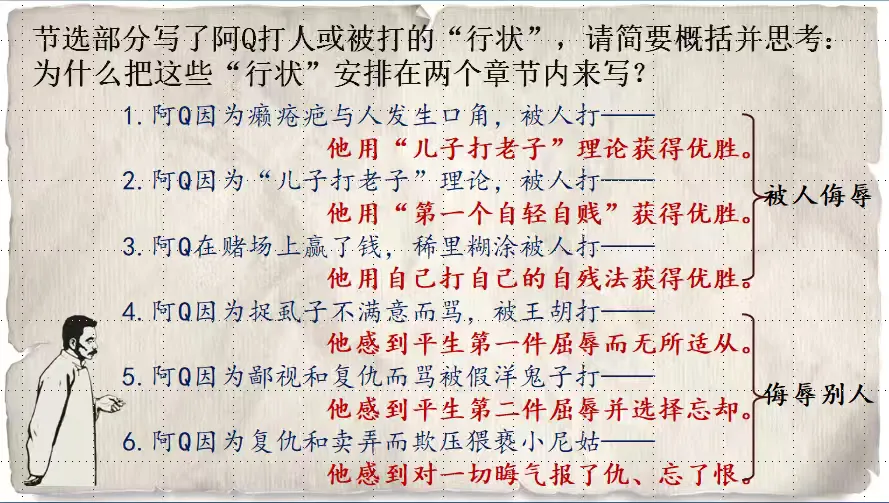 节选部分写了阿Q打人或被打的“行状”，请简要概括并思考：
为什么把这些“行状”安排在两个章节内来写？
1.阿Q因为癞疮疤与人发生口角，被人打——
他用“儿子打老子”理论获得优胜。
2.阿Q因为“儿子打老子”理论，被人打——
他用“第一个自轻自贱”获得优胜。
被人侮辱
3.阿Q在赌场上赢了钱，稀里糊涂被人打——
他用自己打自己的自残法获得优胜。
4.阿Q因为捉虱子不满意而骂，被王胡打——
他感到平生第一件屈辱而无所适从。
5.阿Q因为鄙视和复仇而骂被假洋鬼子打——
侮辱别人
他感到平生第二件屈辱并选择忘却。
6.阿Q因为复仇和卖弄而欺压猥亵小尼姑——
他感到对一切晦气报了仇、忘了恨。